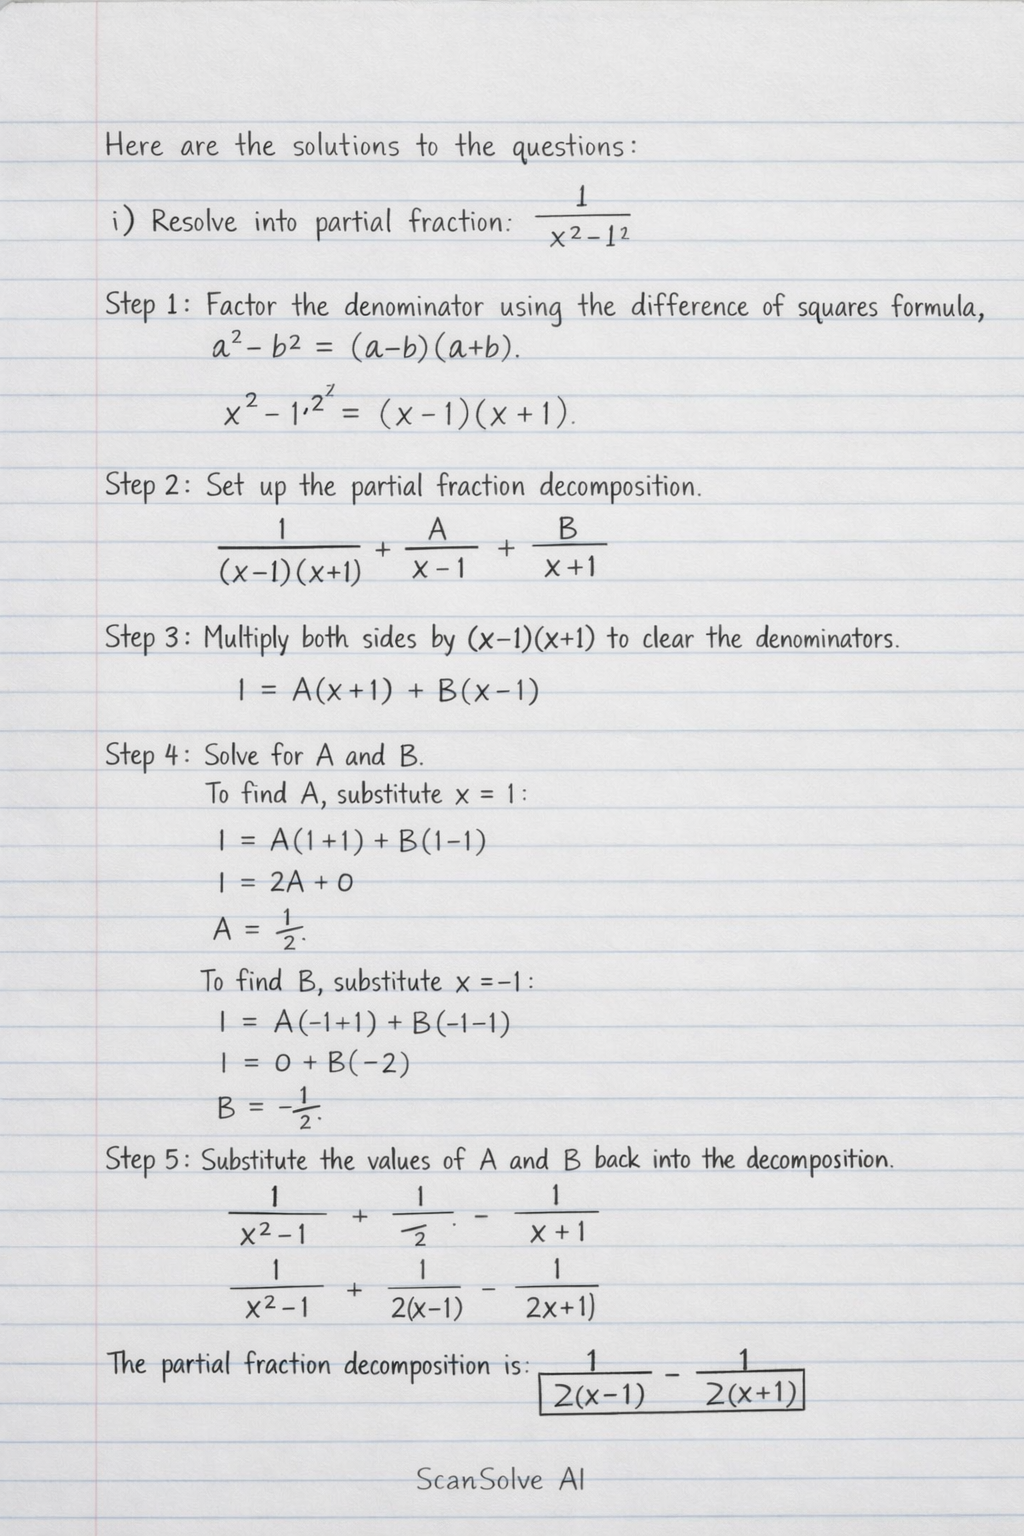 Here are the solutions to the questions:
i) Resolve into partial fraction: 1/(x²-1²)
Step 1: Factor the denominator using the difference of squares formula,
a²-b² = (a-b)(a+b).
x²-1,2² = (x-1)(x+1).
Step 2: Set up the partial fraction decomposition.
1/((x-1)(x+1)) + A/(x-1) + B/(x+1)
Step 3: Multiply both sides by (x-1)(x+1) to clear the denominators.
1 = A(x+1) + B(x-1)
Step 4: Solve for A and B.
To find A, substitute x = 1:
1 = A(1+1) + B(1-1)
1 = 2A + 0
A = 1/2.
To find B, substitute x = -1:
1 = A(-1+1) + B(-1-1)
1 = 0 + B(-2)
B = -1/2.
Step 5: Substitute the values of A and B back into the decomposition.
1/(x²-1) + 1/2 . - 1/(x+1)
1/(x²-1) + 1/(2(x-1)) - 1/2x+1)
The partial fraction decomposition is: 1/(2(x-1)) - 1/(2(x+1))
ScanSolve AI